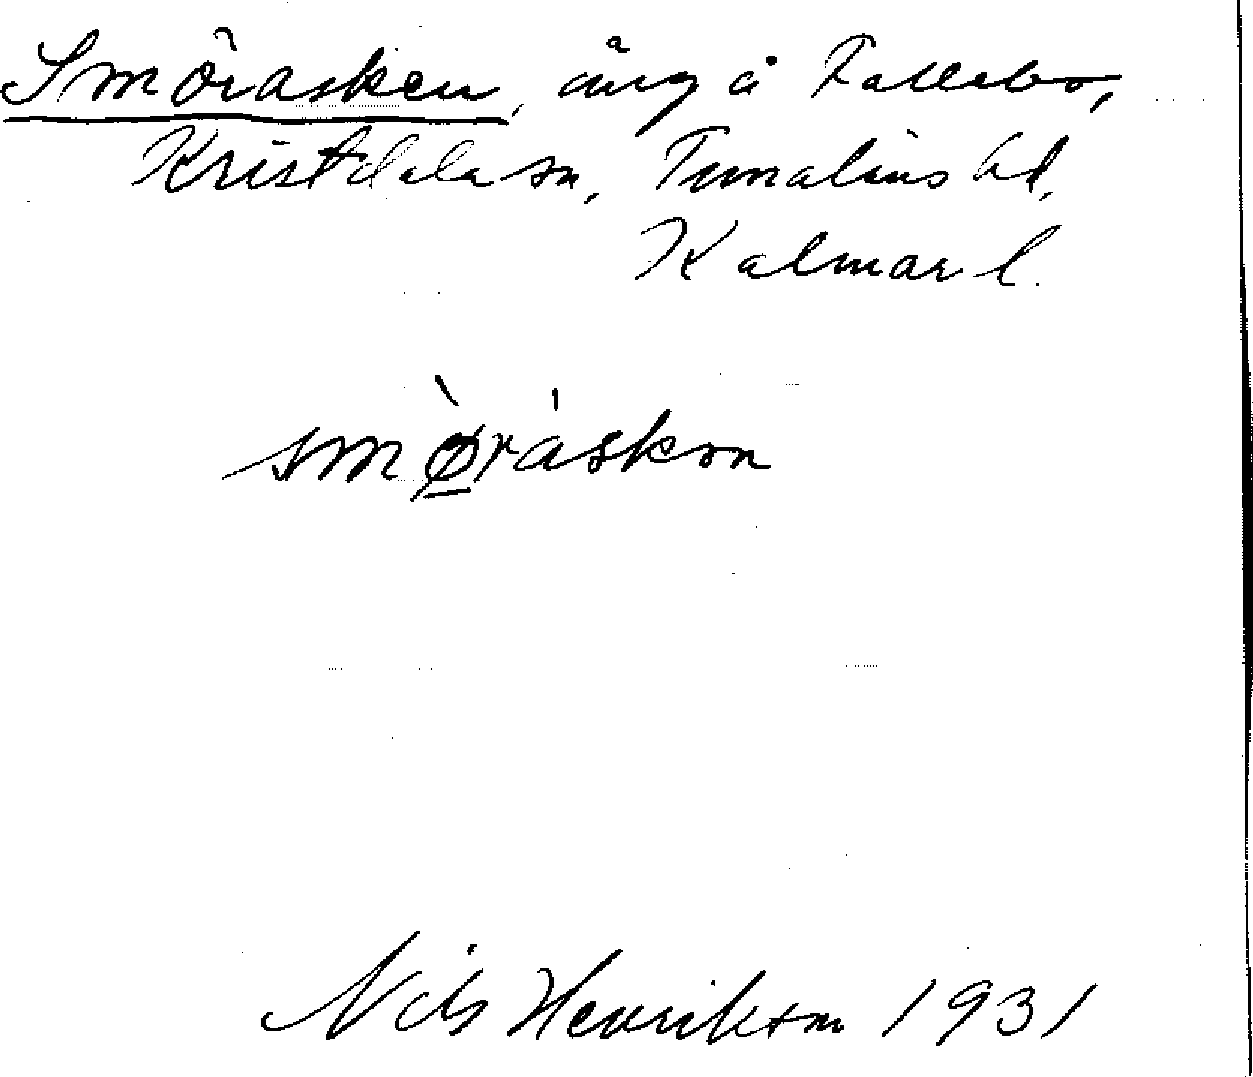 Smörasken, äng å Fallebo,
Kristdala sn, Tunaläns hd,
Kalmar l.
smø̀ráskən
Nils Henrikson 1931